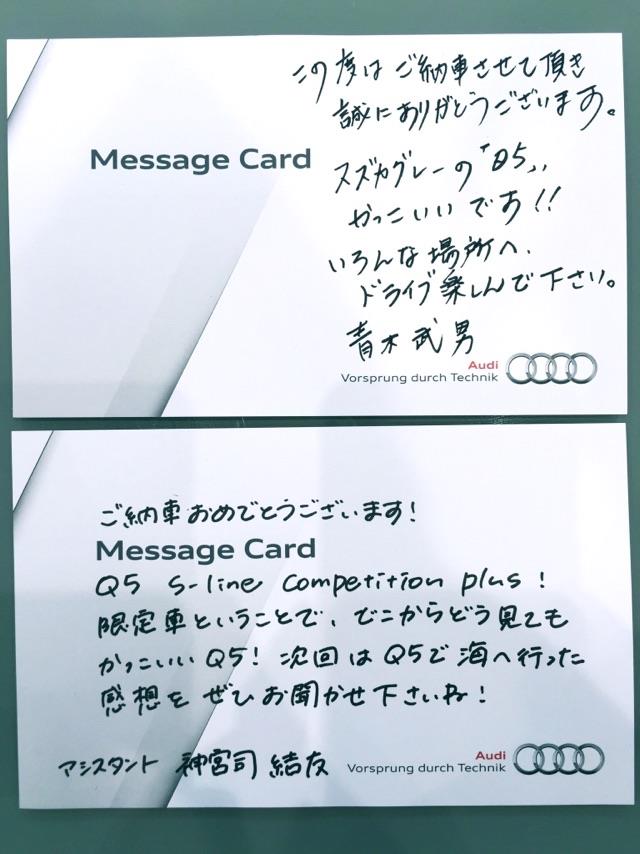 この度はご納車させて頂き
誠にありがとうございます。
Message Card
スズカグレーの「Q5」、
かっこいいです!!
いろんな場所へ、
ドライブ楽しんで下さい。
青木武男
Audi
Vorsprung durch Technik
ご納車おめでとうございます!
Message Card
Q5 S-line Competition plus!
限定車ということで、どこからどう見ても
かっこいいQ5! 次回はQ5で海へ行った
感想をぜひお聞かせ下さいね!
アシスタント 神宮司 結友
Audi
Vorsprung durch Technik